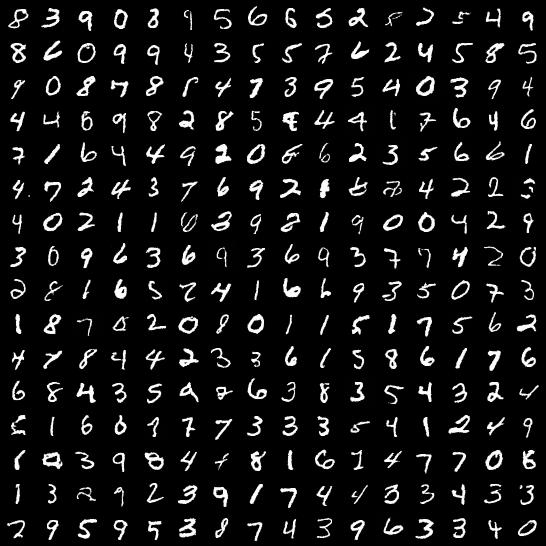 8 3 9 0 3 9 5 6 6 5 2 8 2 5 4 9
8 6 0 9 9 4 3 5 5 7 6 2 4 5 8 5
9 0 8 7 8 1 4 7 3 9 5 4 0 3 9 4
4 4 6 9 8 2 8 5 4 4 1 7 6 4 6
7 1 6 4 4 9 2 0 6 6 2 3 5 6 6 1
4 7 2 4 3 7 6 9 2 1 4 2 2 3
4 0 2 1 1 0 3 9 8 1 9 0 0 4 2 9
3 0 9 6 3 6 9 3 6 9 3 7 7 4 2 0
2 8 1 6 5 7 4 1 6 6 9 3 5 0 7 3
1 8 7 5 2 0 8 0 1 1 5 1 7 5 6 2
4 7 8 4 4 2 3 3 6 1 5 8 6 1 7 6
6 8 4 3 5 9 2 6 3 8 3 5 4 3 2 4
5 1 6 0 1 7 7 3 3 3 5 4 1 2 4 9
1 3 9 8 4 8 1 6 7 4 7 7 0 8
1 3 2 9 2 3 9 1 7 4 4 3 3 4 3 3
2 9 5 9 5 3 8 7 4 3 9 6 3 3 4 0